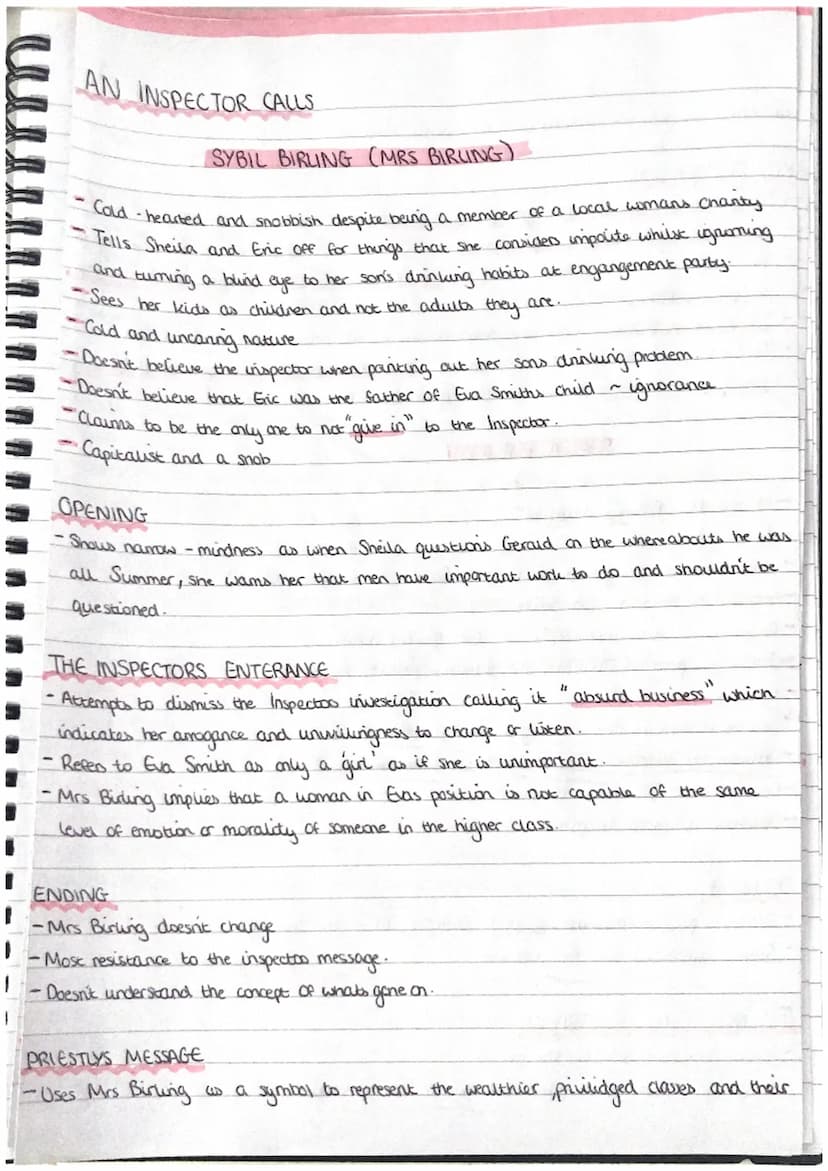 AN INSPECTOR CALLS
SYBIL BIRLING (MRS BIRLING)
- Cold-hearted and snobbish despite being a member of a local womans charity
- Tells Sheila and Eric off for things that she considers impolite whilst ignorning
and turning a blind eye to her son's drinking habits at engangement party.
- Sees her kids as children and not the adults they are.
- Cold and uncaring nature
- Doesn't believe the inspector when pointing out her sons drinking problem
- Doesn't believe that Eric was the father of Eva Smiths child ~ ignorance
- Claims to be the only one to not "give in" to the Inspector.
- Capitalist and a snob
OPENING
- Shows narrow-mindness as when Sheila questions Gerald on the whereabouts he was
all Summer, she warns her that men have important work to do and shouldn't be
questioned.
THE INSPECTORS ENTERANCE
- Attempts to dismiss the Inspectors investigation calling it "absurd business" which
indicates her arrogance and unwillingness to change or listen.
- Refers to Eva Smith as only a 'girl' as if she is unimportant.
- Mrs Birling implies that a woman in Evas position is not capable of the same
level of emotion or morality of someone in the higher class.
ENDING
- Mrs Birling doesn't change
- Most resistance to the inspectors message.
- Doesn't understand the concept of whats gone on.
PRIESTLYS MESSAGE
- Uses Mrs Birling as a symbol to represent the wealthier, privilidged classes and their